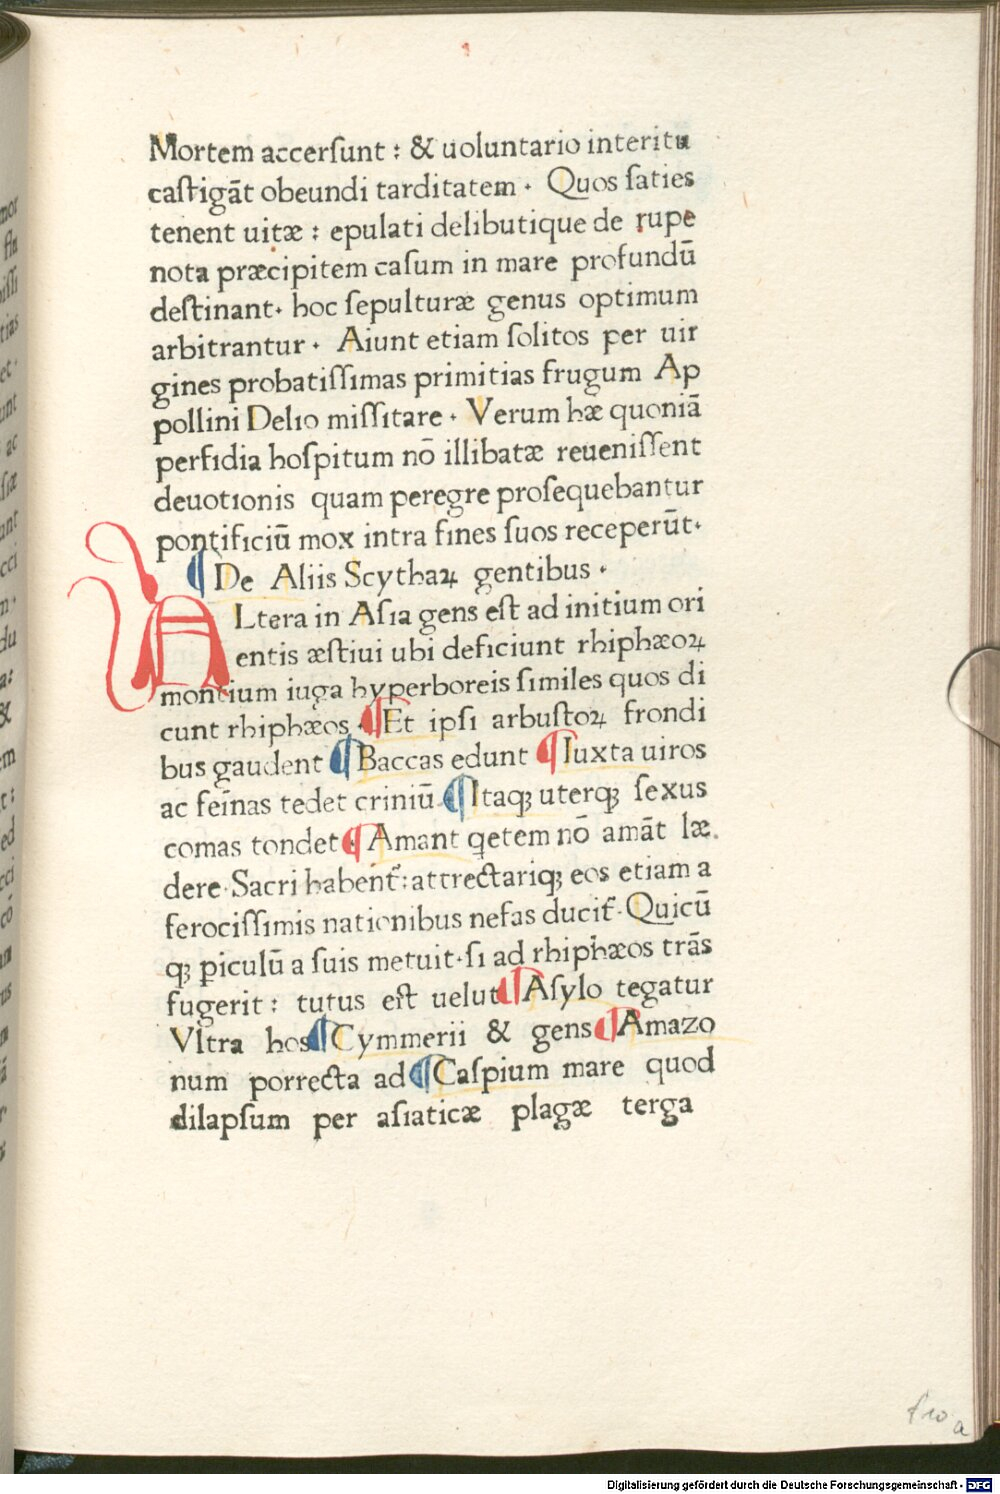 Mortem accerſunt : & uoluntario interitu
caſtigāt obeundi tarditatem · Quos ſaties
tenent uitæ : epulati delibutique de rupe
nota præcipitem caſum in mare profundū
deſtinant· hoc ſepulturæ genus optimum
arbitrantur · Aiunt etiam ſolitos per uir
gines probatiſſimas primitias frugum Ap
pollini Delio miſſitare · Verum hæ quoniā
perfidia hoſpitum nō illibatæ reueniſſent
deuotionis quam peregre proſequebantur
pontificiū mox intra fines ſuos receperūt·
¶ De Aliis Scythaꝝ gentibus ·
ALtera in Aſia gens eſt ad initium ori
entis æſtiui ubi deficiunt rhiphæoꝝ
montium iuga hyperboreis ſimiles quos di
cunt rhiphæos ¶ Et ipſi arbuſtoꝝ frondi
bus gaudent ¶ Baccas edunt ¶ Iuxta uiros
ac fei̅nas tedet criniū ¶ Itaqꝫ uterqꝫ ſexus
comas tondet ¶ Amant qetem nō amāt læ
dere· Sacri habent᷑: attrectariqꝫ eos etiam a
ferociſſimis nationibus nefas ducit᷑· Quicū
qꝫ ꝑiculū a ſuis metuit·ſi ad rhiphæos trāſ
fugerit : tutus eſt uelut ¶ Aſylo tegatur
Vltra hos ¶ Cymmerii & gens ¶ Amazo
num porrecta ad ¶ Caſpium mare quod
dilapſum per aſiaticæ plagæ terga
a
Digitalisierung gefördert durch die Deutsche Forschungsgemeinschaft - DFG